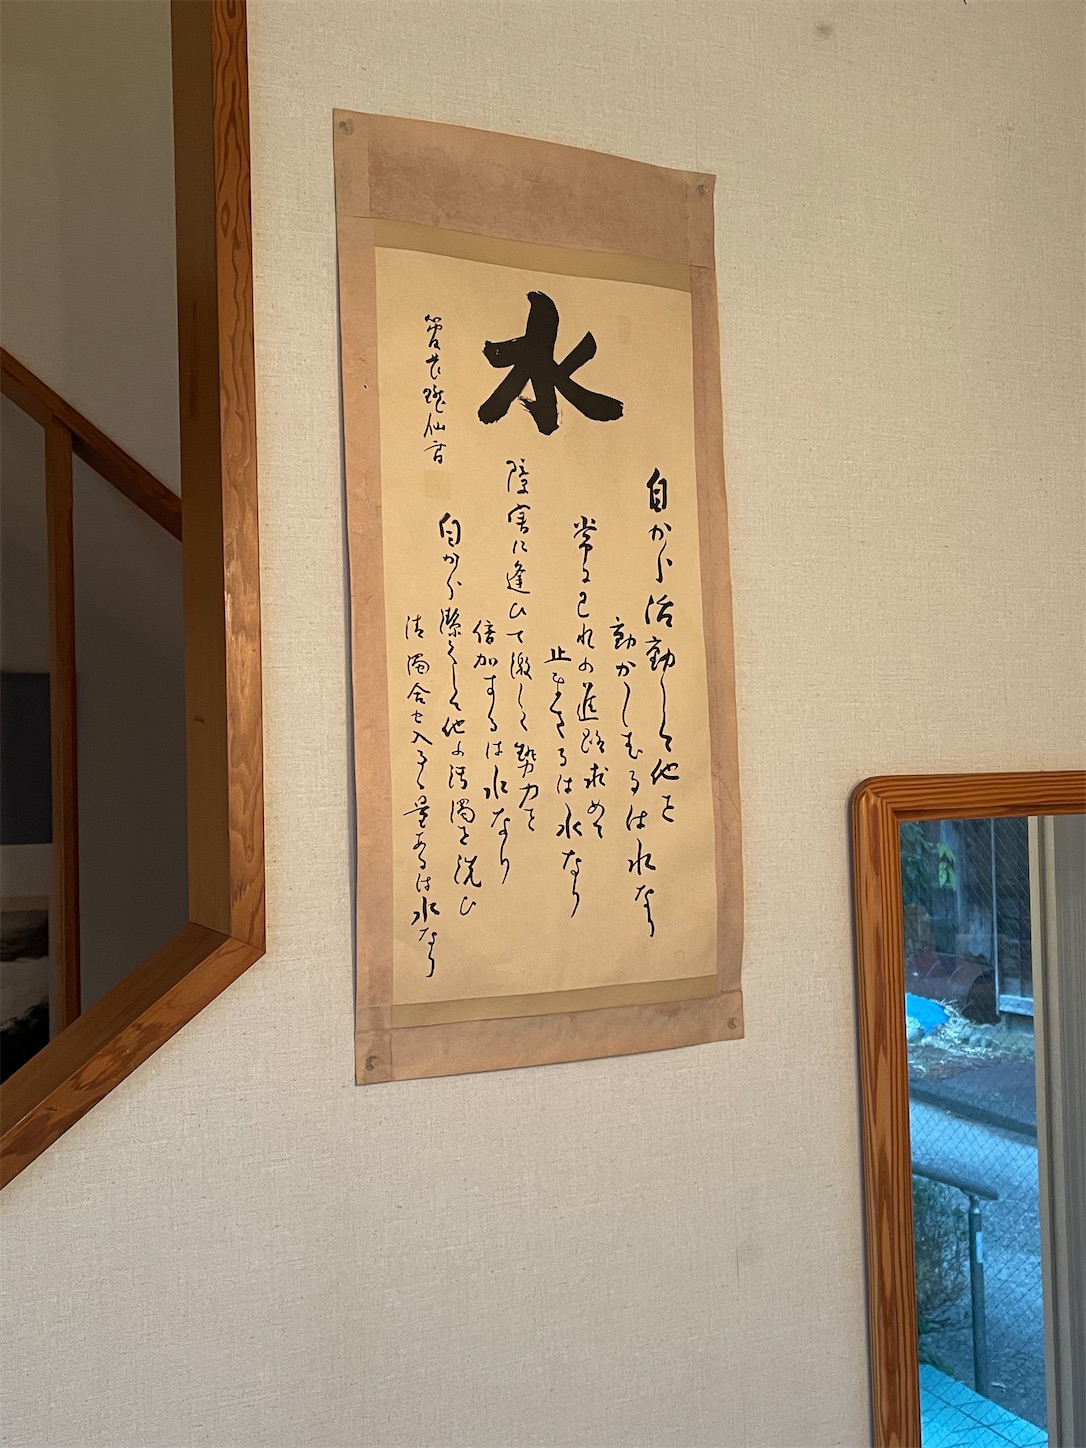 水
自から活動して他を
動かしむるは水なり
常に己れの進路求めて
止まさるは水なり
障害に逢ひて激して勢力を
倍加するは水なり
自から潔くして他の汚濁を洗ひ
清濁合せ入るゝ量あるは水なり
管長瓏仙書